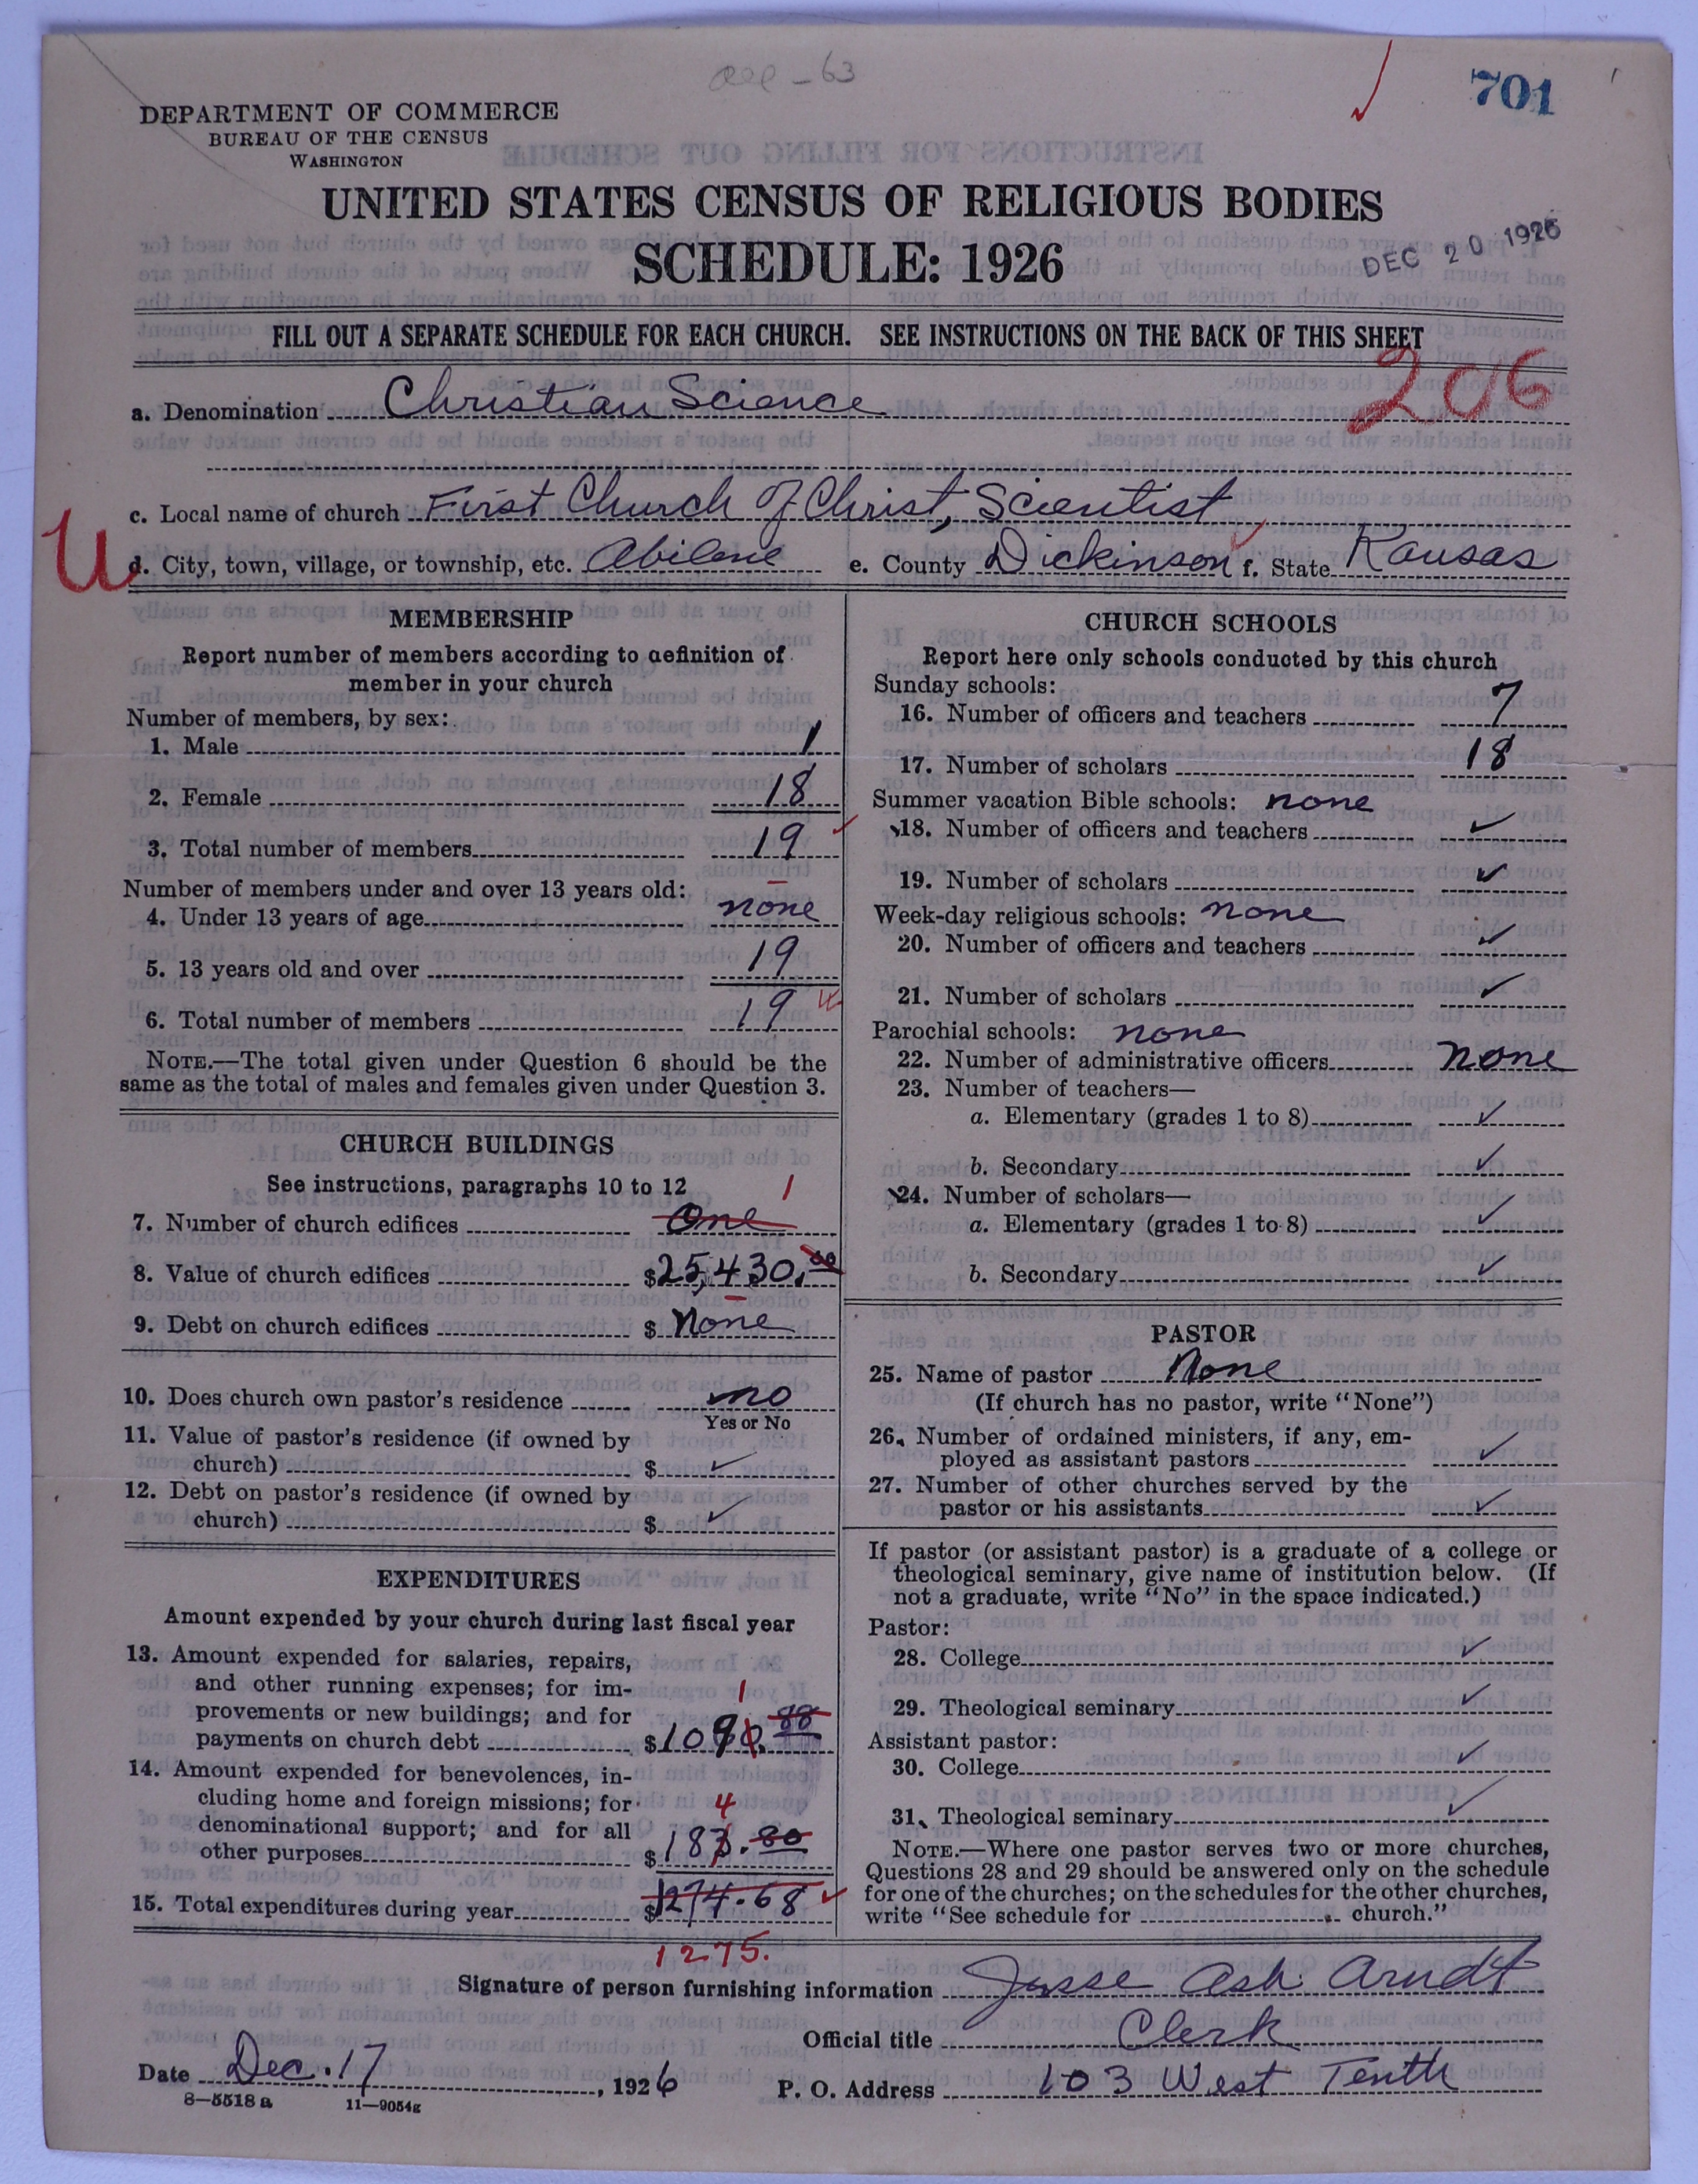 701
DEPARTMENT OF COMMERCE
BUREAU OF THE CENSUS
WASHINGTON
UNITED STATES CENSUS OF RELIGIOUS BODIES
SCHEDULE: 1926
DEC 20 1926
FILL OUT A SEPARATE SCHEDULE FOR EACH CHURCH. SEE INSTRUCTIONS ON THE BACK OF THIS SHEET
206
a. Denomination Christian Science
c. Local name of church First Church of Christ, Scientist
d. City, town, village, or township, etc. Abilene e. County Dickinson f. State Kansas
MEMBERSHIP
Report number of members according to definition of
member in your church
Number of members, by sex:
1. Male 1
2. Female 18
3. Total number of members 19
Number of members under and over 13 years old:
4. Under 13 years of age none
5. 13 years old and over 19
6. Total number of members 19
NOTE.—The total given under Question 6 should be the
same as the total of males and females given under Question 3.
CHURCH BUILDINGS
See instructions, paragraphs 10 to 12
1
7. Number of church edifices One
8. Value of church edifices $25,430.00
9. Debt on church edifices $ None
10. Does church own pastor's residence no
Yes or No
11. Value of pastor's residence (if owned by
church) $ ✓
12. Debt on pastor's residence (if owned by
church) $ ✓
EXPENDITURES
Amount expended by your church during last fiscal year
13. Amount expended for salaries, repairs,
and other running expenses; for im-
provements or new buildings; and for
1
payments on church debt $1090.88
14. Amount expended for benevolences, in-
cluding home and foreign missions; for
4
denominational support; and for all
other purposes $183.80
15. Total expenditures during year $1274.68
1275.
CHURCH SCHOOLS
Report here only schools conducted by this church
Sunday schools:
16. Number of officers and teachers 7
17. Number of scholars 18
Summer vacation Bible schools: none
18. Number of officers and teachers ✓
19. Number of scholars ✓
Week-day religious schools: none
20. Number of officers and teachers ✓
21. Number of scholars ✓
Parochial schools: none
22. Number of administrative officers none
23. Number of teachers—
a. Elementary (grades 1 to 8) ✓
b. Secondary ✓
24. Number of scholars—
a. Elementary (grades 1 to 8) ✓
b. Secondary ✓
PASTOR
25. Name of pastor None
(If church has no pastor, write "None")
26. Number of ordained ministers, if any, em-
ployed as assistant pastors ✓
27. Number of other churches served by the
pastor or his assistants ✓
If pastor (or assistant pastor) is a graduate of a college or
theological seminary, give name of institution below. (If
not a graduate, write "No" in the space indicated.)
Pastor:
28. College ✓
29. Theological seminary ✓
Assistant pastor:
30. College ✓
31. Theological seminary ✓
NOTE.—Where one pastor serves two or more churches,
Questions 28 and 29 should be answered only on the schedule
for one of the churches; on the schedules for the other churches,
write "See schedule for church."
Signature of person furnishing information Jesse Ash Arndt
Official title Clerk
Date Dec. 17, 1926 P. O. Address 103 West Tenth
8—5518a 11—9054g